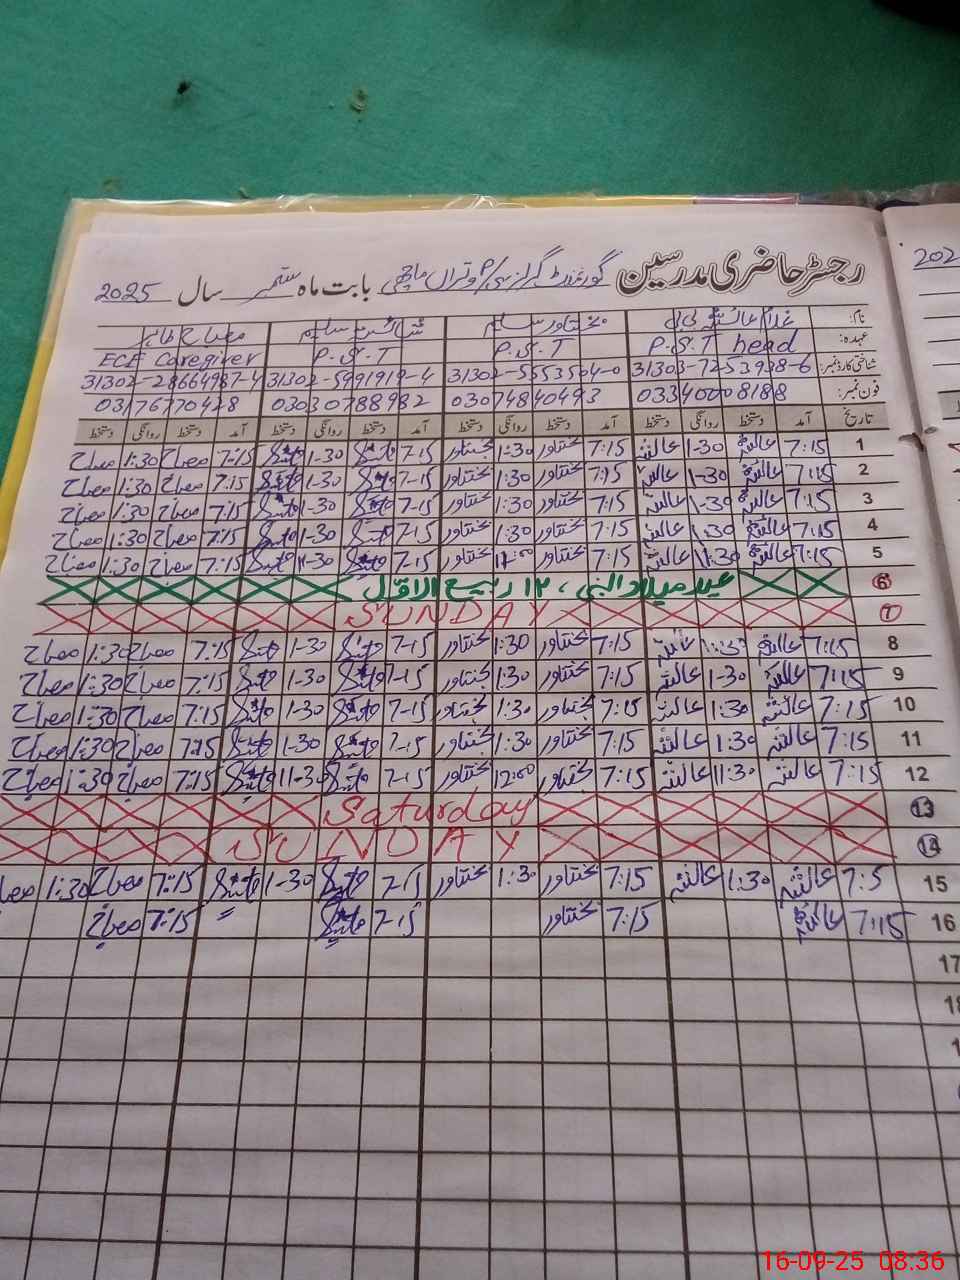 رجسٹر حاضری مدرسین گورنمنٹ گرلز پی/س وتراں ماچھی بابت ماہ ستمبر سال 2025
202
نام: عائشہ بی بی بختاور سلیم شائستہ سلیم مصباح طاہر
عہدہ: P.S.T head P.S.T P.S.T ECE Caregiver
شناختی کارڈ نمبر: 31303-7253928-6 31302-5553504-0 31302-5991919-4 31302-28664987-4
فون نمبر: 03340008188 03074840493 03030788982 03176770428
تاریخ آمد دستخط روانگی دستخط آمد دستخط روانگی دستخط آمد دستخط روانگی دستخط آمد دستخط روانگی دستخط
1 7:15 عائشہ 1-30 عائشہ 7:15 بختاور 1:30 بختاور 7-15 شائستہ 1-30 شائستہ 7:15 مصباح 1:30 مصباح
2 7:15 عائشہ 1-30 عائشہ 7:15 بختاور 1:30 بختاور 7-15 شائستہ 1-30 شائستہ 7:15 مصباح 1:30 مصباح
3 7:15 عائشہ 1-30 عائشہ 7:15 بختاور 1:30 بختاور 7-15 شائستہ 1-30 شائستہ 7:15 مصباح 1:30 مصباح
4 7:15 عائشہ 1:30 عائشہ 7:15 بختاور 1:30 بختاور 7-15 شائستہ 1-30 شائستہ 7:15 مصباح 1:30 مصباح
5 7:15 عائشہ 11:30 عائشہ 7:15 بختاور 12:00 بختاور 7-15 شائستہ 11-30 شائستہ 7:15 مصباح 1:30 مصباح
6 عید میلاد النبی ، ۱۲ ربیع الاول
7 SUNDAY
8 7:15 عائشہ 1:30 عائشہ 7:15 بختاور 1:30 بختاور 7-15 شائستہ 1-30 شائستہ 7:15 مصباح 1:30 مصباح
9 7:15 عائشہ 1-30 عائشہ 7:15 بختاور 1:30 بختاور 7-15 شائستہ 1-30 شائستہ 7:15 مصباح 1:30 مصباح
10 7:15 عائشہ 1:30 عائشہ 7:15 بختاور 1:30 بختاور 7-15 شائستہ 1-30 شائستہ 7:15 مصباح 1:30 مصباح
11 7:15 عائشہ 1:30 عائشہ 7:15 بختاور 1:30 بختاور 7-15 شائستہ 1-30 شائستہ 7:15 مصباح 1:30 مصباح
12 7:15 عائشہ 11:30 عائشہ 7:15 بختاور 12:00 بختاور 7-15 شائستہ 11-30 شائستہ 7:15 مصباح 1:30 مصباح
13 Saturday
14 SUNDAY
15 7:5 عائشہ 1:30 عائشہ 7:15 بختاور 1:30 بختاور 7-15 شائستہ 1-30 شائستہ 7:15 مصباح 1:30 مصباح
16 7:15 عائشہ 7:15 بختاور 7-15 شائستہ 7:15 مصباح
17
16-09-25 08:36